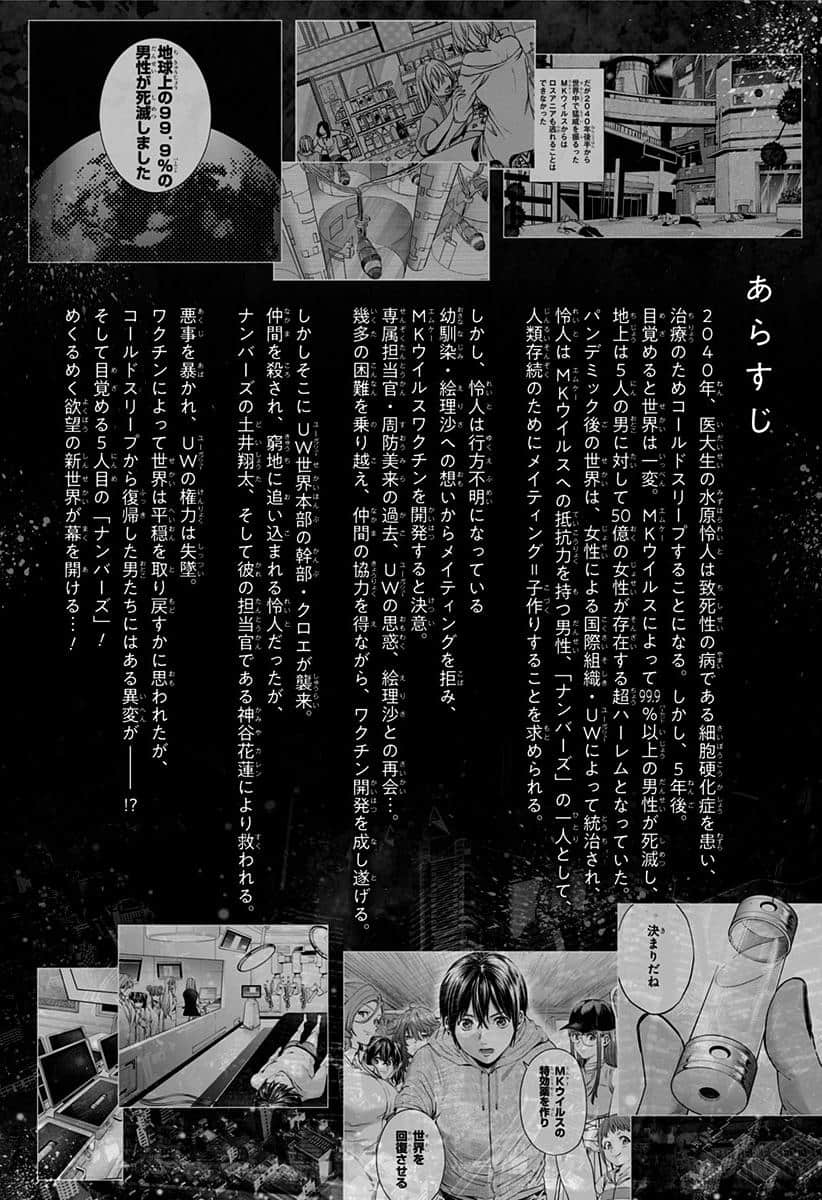 だが2040年後半から
世界中で猛威を振るった
MKウイルスからは
ロスアニアも逃れることは
できなかった
地球上の99.9%の
男性が死滅しました
あらすじ
2040年、医大生の水原怜人は致死性の病である細胞硬化症を患い、
治療のためコールドスリープすることになる。しかし、5年後。
目覚めると世界は一変。MKウイルスによって99.9%以上の男性が死滅し、
地上は5人の男に対して50億の女性が存在する超ハーレムとなっていた。
パンデミック後の世界は、女性による国際組織・UWによって統治され、
怜人はMKウイルスへの抵抗力を持つ男性、「ナンバーズ」の一人として、
人類存続のためにメイティング=子作りすることを求められる。
しかし、怜人は行方不明になっている
幼馴染・絵理沙への想いからメイティングを拒み、
MKウイルスワクチンを開発すると決意。
専属担当官・周防美来の過去、UWの思惑、絵理沙との再会…。
幾多の困難を乗り越え、仲間の協力を得ながら、ワクチン開発を成し遂げる。
しかしそこにUW世界本部の幹部・クロエが襲来。
仲間を殺され、窮地に追い込まれる怜人だったが、
ナンバーズの土井翔太、そして彼の担当官である神谷花蓮により救われる。
悪事を暴かれ、UWの権力は失墜。
ワクチンによって世界は平穏を取り戻すかに思われたが、
コールドスリープから復帰した男たちにはある異変が――!?
そして目覚める5人目の「ナンバーズ」!
めくるめく欲望の新世界が幕を開ける…!
決まりだね
MKウイルスの
特効薬を作り
世界を
回復させる